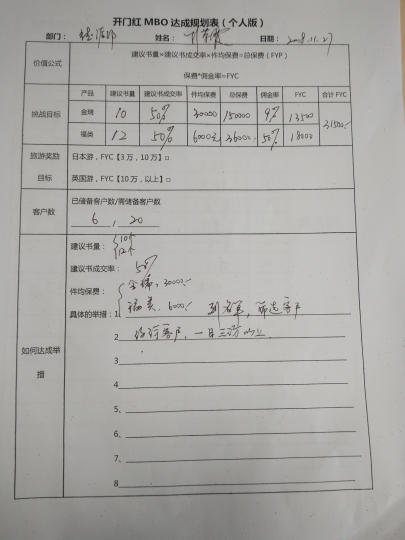 开门红 MBO 达成规划表（个人版）
部门： 姓名： 日期：2018.11.27
价值公式
建议书量×建议书成交率×件均保费=总保费（FYP）
保费*佣金率=FYC
挑战目标
产品 建议书量 建议书成交率 件均保费 总保费 佣金率 FYC 合计 FYC
金瑞 10 50% 30000 150000 9% 13500 31500.-
福类 12 50% 6000元 36000.- 50% 18000
旅游奖励
目标
日本游，FYC【3 万，10 万】□
英国游，FYC【10 万，以上】□
客户数
已储备客户数/需储备客户数
6 , 20
如何达成举
措
建议书量： 10个
12个
建议书成交率： 50%
件均保费： 金瑞，30000.-
福类，6000.-
具体的举措：1 列名单，筛选客户
2 客户，一日三访以上
3
4
5、
6、
7、
8